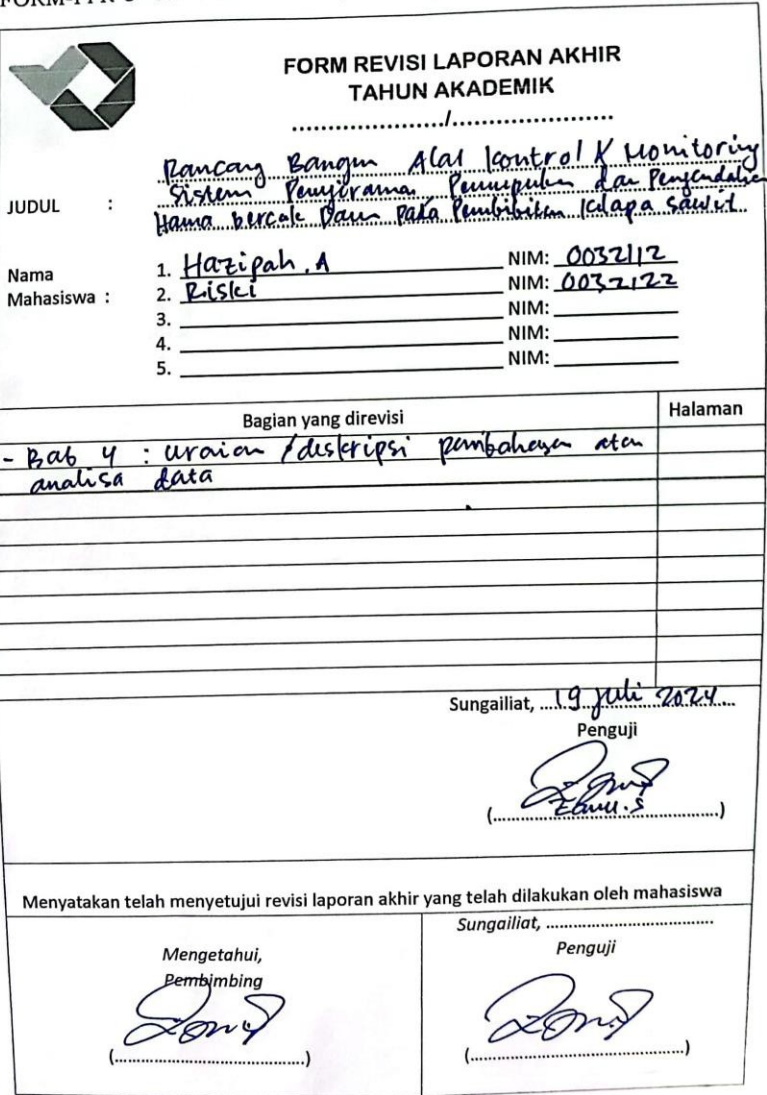 FORM REVISI LAPORAN AKHIR
TAHUN AKADEMIK
...................../......................
JUDUL : Rancang Bangun Alat Kontrol & Monitoring
Sistem Penyiraman Pemupukan dan Pengendalian
Hama bercak Daun Pada Pembibitan Kelapa Sawit
Nama
Mahasiswa :
1. Hazipah. A NIM: 0032112
2. Riski NIM: 0032122
3. NIM:
4. NIM:
5. NIM:
Bagian yang direvisi Halaman
- Bab 4 : uraian / deskripsi pembahasan atau
analisa data
Sungailiat, 19 Juli 2024
Penguji
(................................)
Menyatakan telah menyetujui revisi laporan akhir yang telah dilakukan oleh mahasiswa
Mengetahui,
Pembimbing
(................................)
Sungailiat, ................................
Penguji
(................................)